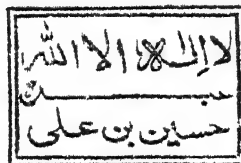 لا اله الا الله
حسین بن علی